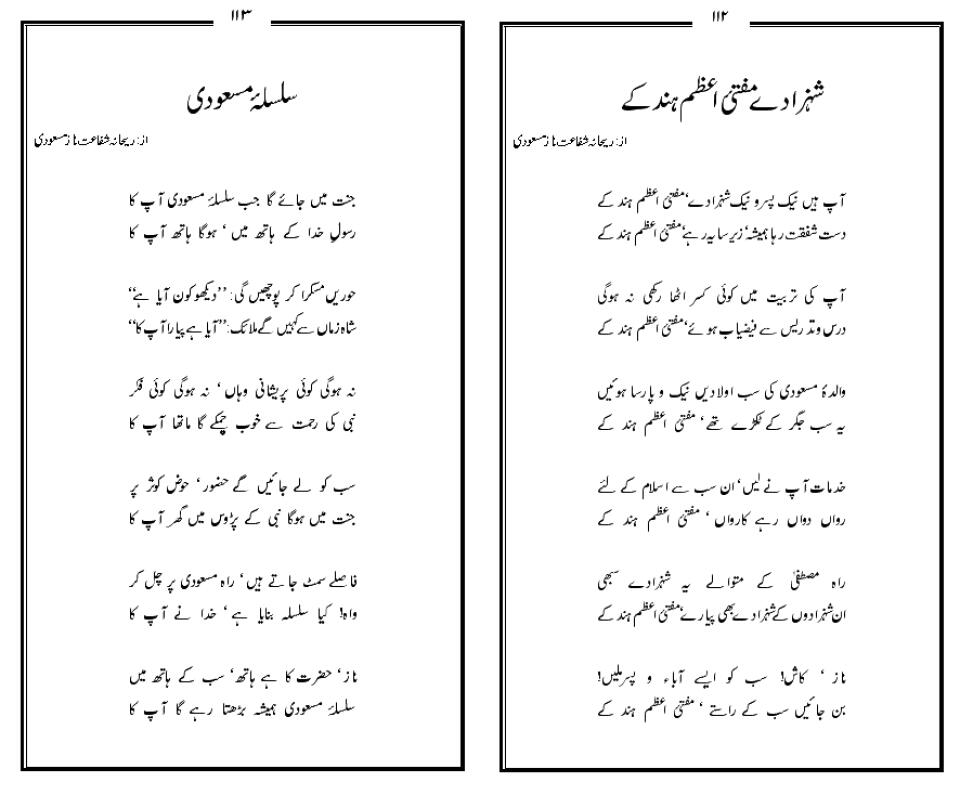 ۱۱۲
شہزادے مفتیٔ اعظم ہند کے
از: ریحانہ شفاعت ناز مسعودی
آپ ہیں نیک پسر و نیک شہزادے‘ مفتیٔ اعظم ہند کے
دست شفقت رہا ہمیشہ‘ زیر سایہ رہے‘ مفتیٔ اعظم ہند کے
آپ کی تربیت میں کوئی کسر اٹھا رکھی نہ ہوگی
درس و تدریس سے فیضیاب ہوئے‘ مفتیٔ اعظم ہند کے
والدۂ مسعودی کی سب اولادیں نیک و پارسا ہوئیں
یہ سب جگر کے ٹکڑے تھے‘ مفتیٔ اعظم ہند کے
خدمات آپ نے لیں‘ ان سب سے اسلام کے لئے
رواں دواں رہے کارواں ‘ مفتیٔ اعظم ہند کے
راہ مصطفیٰ کے متوالے یہ شہزادے سبھی
ان شہزادوں کے شہزادے بھی پیارے‘ مفتیٔ اعظم ہند کے
ناز ‘ کاش! سب کو ایسے آباء و پسر ملیں!
بن جائیں سب کے راستے ‘ مفتیٔ اعظم ہند کے
۱۱۳
سلسلۂ مسعودی
از: ریحانہ شفاعت ناز مسعودی
جنت میں جائے گا جب سلسلۂ مسعودی آپ کا
رسولِ خدا کے ہاتھ میں ‘ ہوگا ہاتھ آپ کا
حوریں مسکرا کر پوچھیں گی: ’’دیکھو کون آیا ہے‘‘
شاہ زماں سے کہیں گے ملائک: ’’آیا ہے پیارا آپ کا‘‘
نہ ہوگی کوئی پریشانی وہاں ‘ نہ ہوگی کوئی فکر
نبی کی رحمت سے خوب چمکے گا ماتھا آپ کا
سب کو لے جائیں گے حضور ‘ حوض کوثر پر
جنت میں ہوگا نبی کے پڑوس میں گھر آپ کا
فاصلے سمٹ جاتے ہیں ‘ راہ مسعودی پر چل کر
واہ! کیا سلسلہ بنایا ہے ‘ خدا نے آپ کا
ناز ‘ حضرت کا ہے ہاتھ ‘ سب کے ہاتھ میں
سلسلۂ مسعودی ہمیشہ بڑھتا رہے گا آپ کا